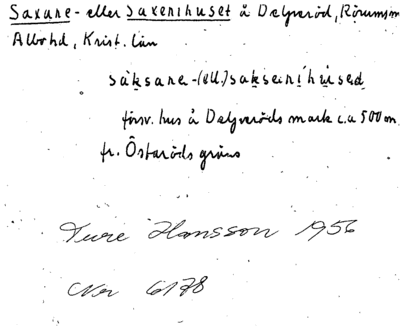 Saxane- eller Saxenihuset å Delperöd, Rörums sn
Albo hd, Krist. län
säksane-(ell.) sakseni hused
försv. hus å Delperöds mark c.a 500 m
fr. Östaröds gräns
Ture Hansson 1956
6178